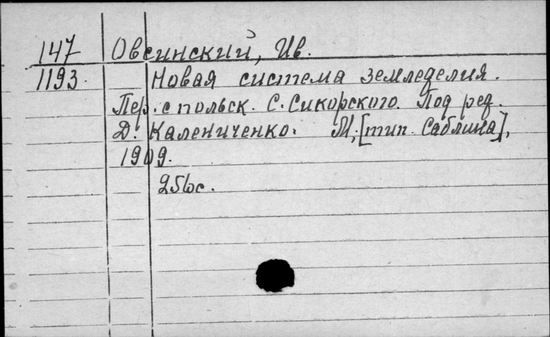 147 Овсинский, Ив.
1193. Новая система земледелия.
Пер. с польск. С. Сикорского. Под ред.
Д. Калениченко. М, [тип. Саблина],
1909.
256 с.